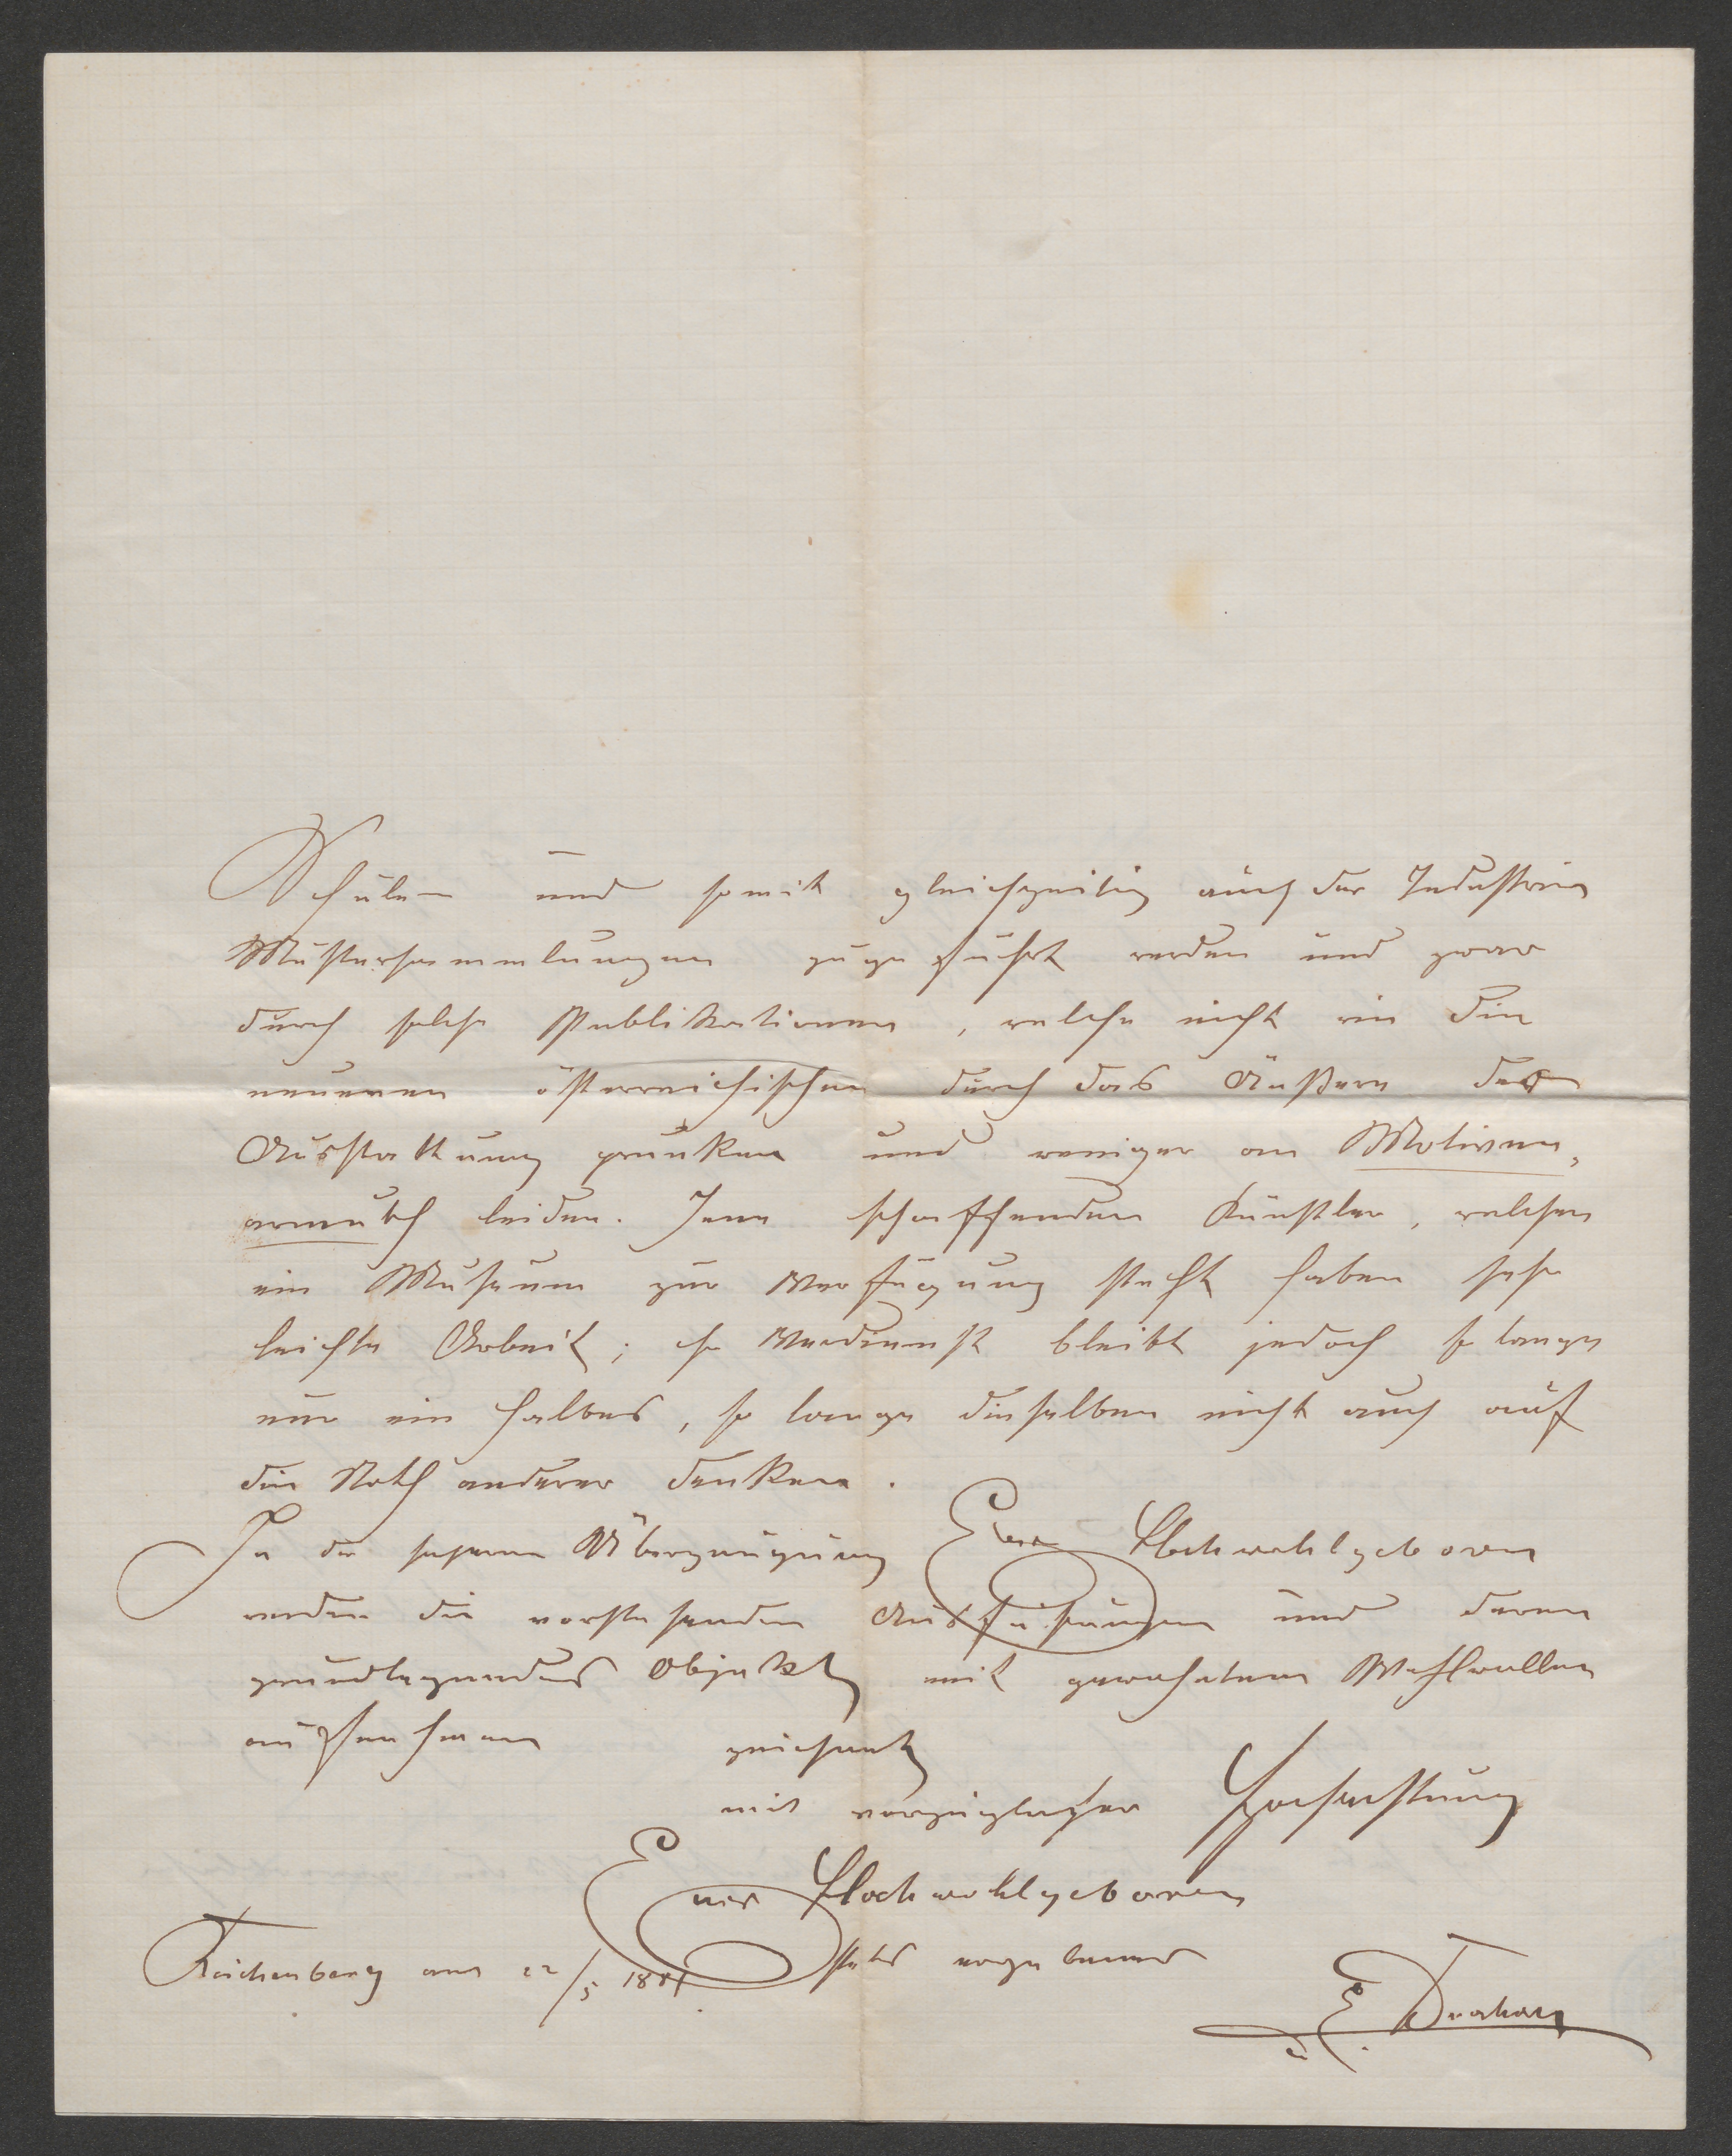 Schulen und somit gleichzeitig auch der Industrie
Mustersammlungen zugeführt werden und zwar
durch solche Publikationen, welche nicht wie die
neueren österreichischen durch das Äußere der
Ausstattung prunken und weniger an Motiven-
armuth leiden. Jene schaffenden Künstler, welchen
ein Museum zur Verfügung steht haben sehr
leichte Arbeit; ihr Verdienst bleibt jedoch so lange
nur ein halbes, so lange dieselben nicht auch auf
die Noth anderer denken.
In der Überzeugung Euer Hochwohlgeboren
werden die vorstehenden Ausführungen und deren
grundlegendes Objekt mit gewohntem Wohlwollen
aufnehmen zeichnet
mit vorzüglicher Hochachtung
Euer Hochwohlgeboren
stets ergebener
Reichenberg am 22/5 188
E.